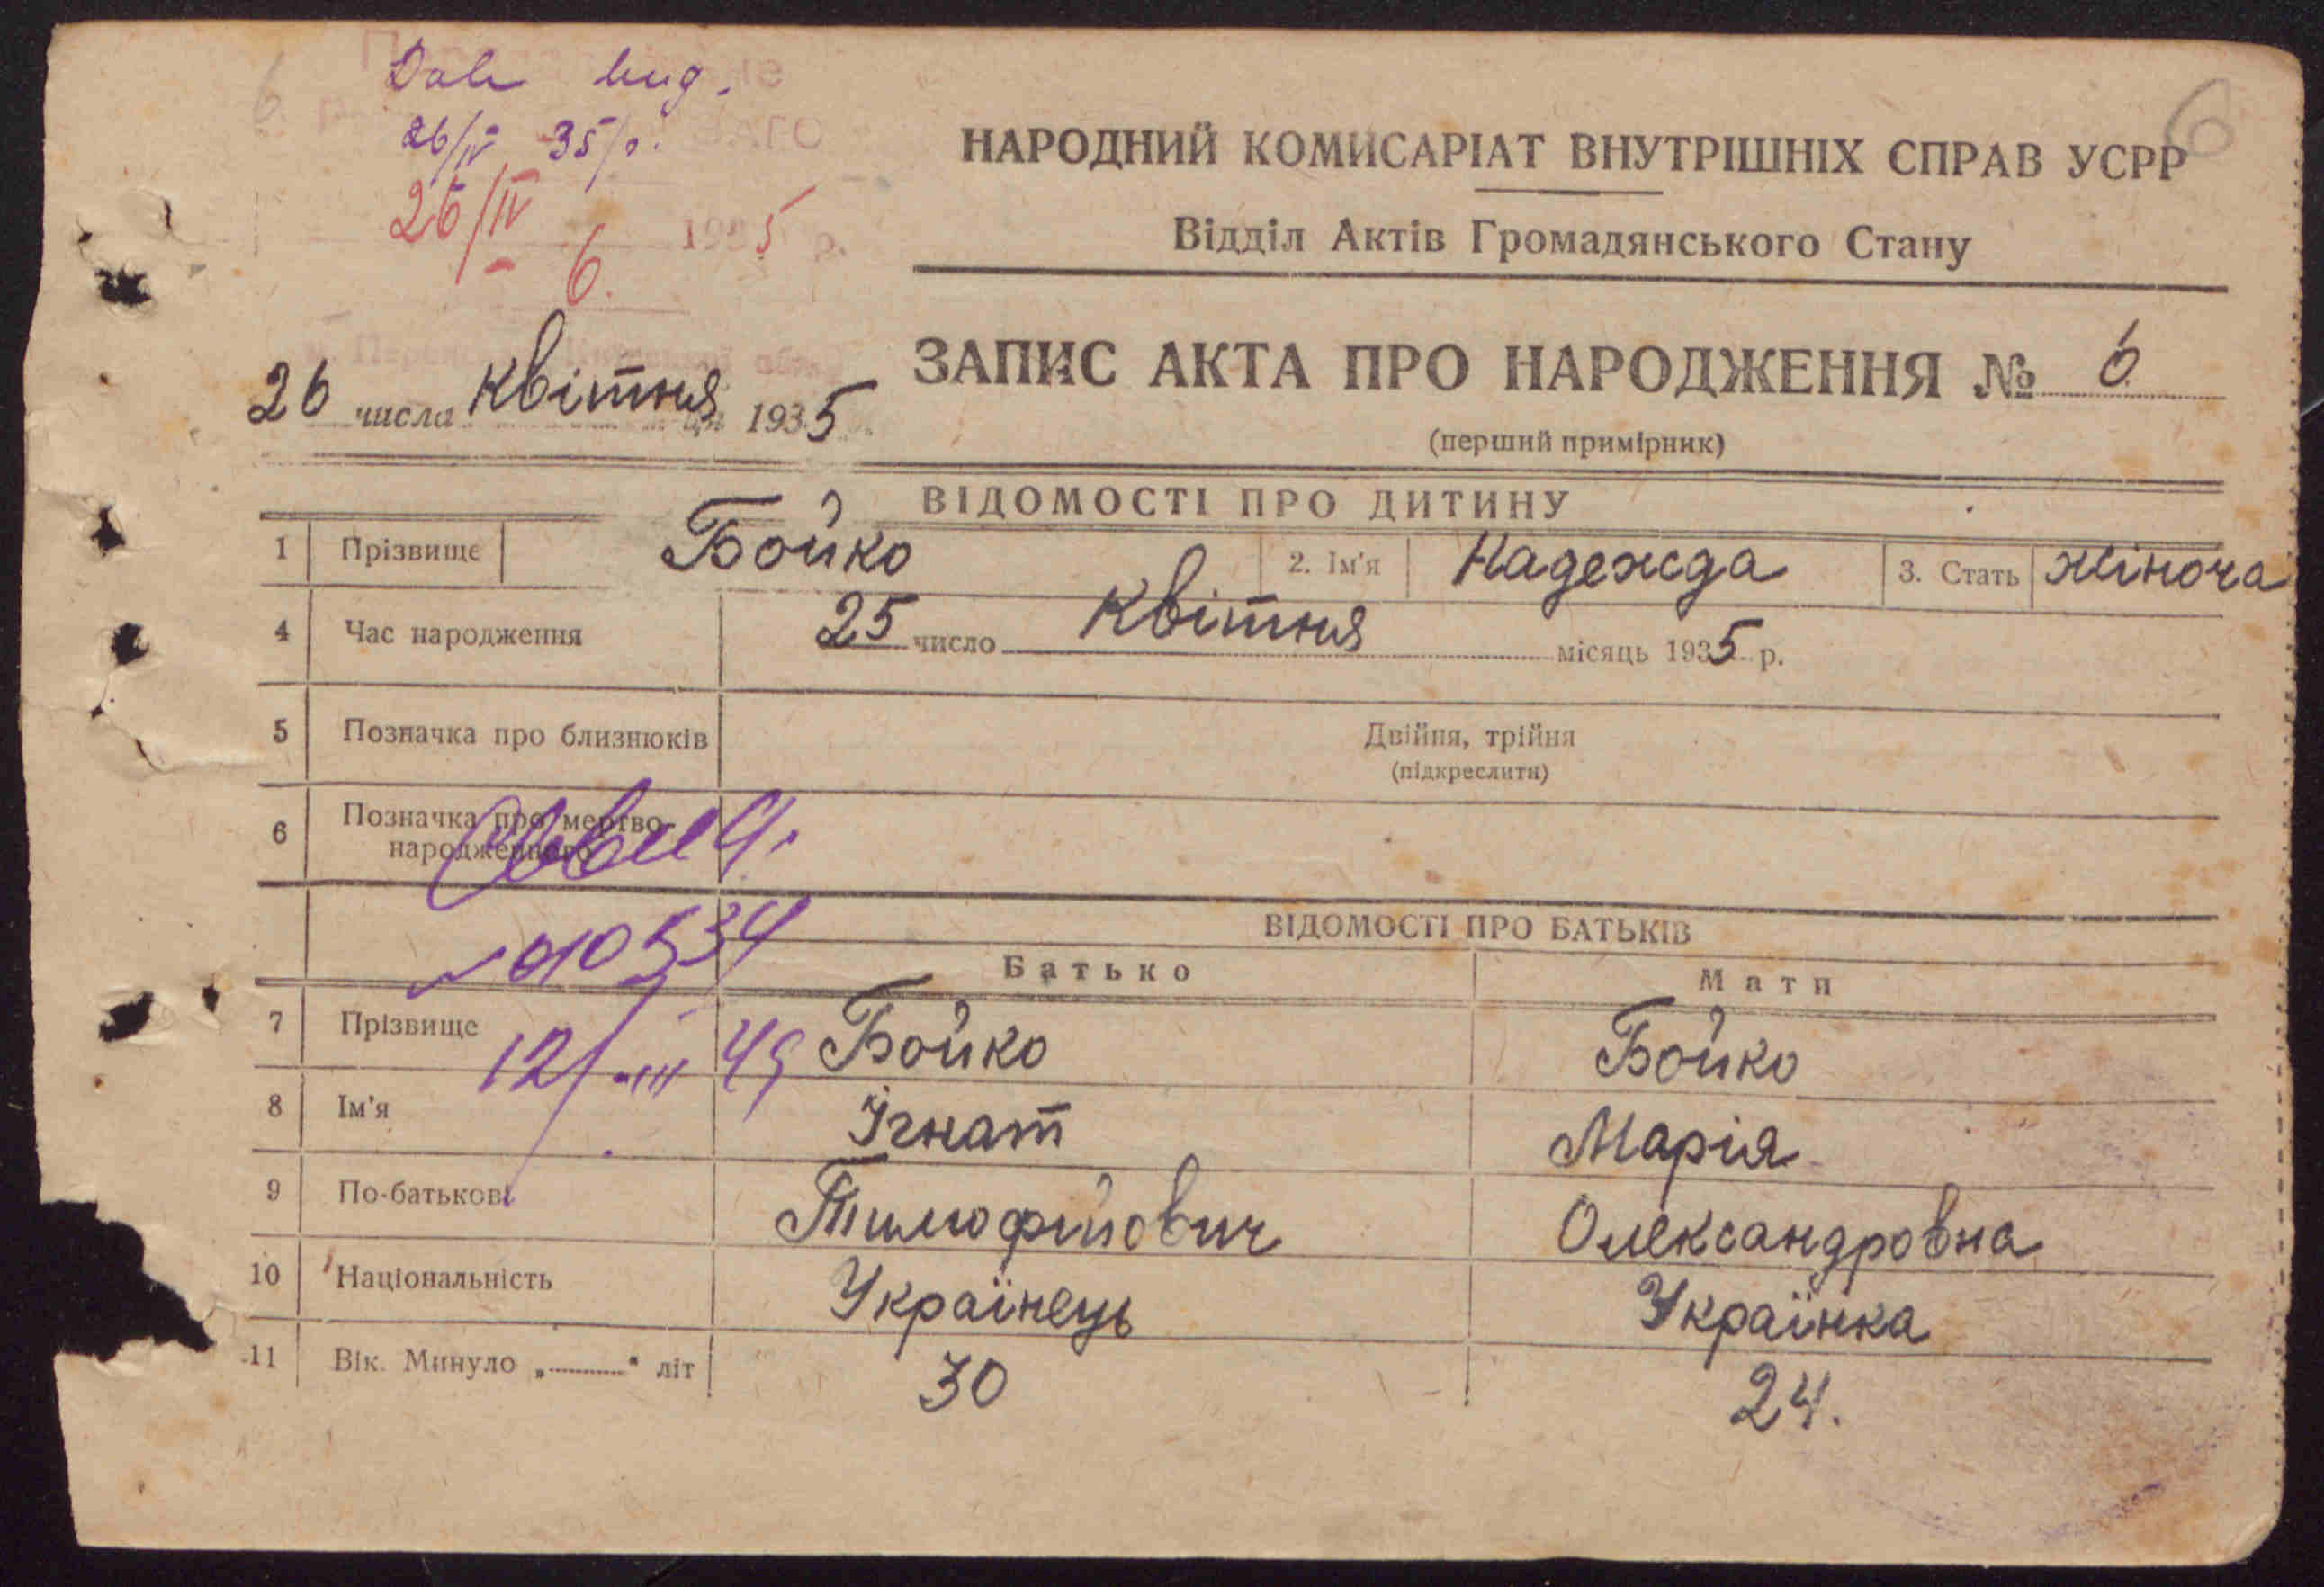 26/IV 35 р.
26/IV 1935 р.
6.
НАРОДНИЙ КОМИСАРІАТ ВНУТРІШНІХ СПРАВ УСРР
6
Відділ Актів Громадянського Стану
ЗАПИС АКТА ПРО НАРОДЖЕННЯ № 6.
(перший примірник)
26 числа квітня 1935
ВІДОМОСТІ ПРО ДИТИНУ
1 Прізвище Бойко 2. Ім'я Надежда 3. Стать жіноча
4 Час народження 25 число квітня місяць 1935 р.
5 Позначка про близнюків Двійня, трійня
(підкреслити)
6 Позначка про мертво-
народженого
ВІДОМОСТІ ПРО БАТЬКІВ
010534
Батько Мати
7 Прізвище Бойко Бойко
12/III 49
8 Ім'я Ігнат Марія
9 По-батькові Тимофійович Олександровна
10 Національність Українець Українка
11 Вік. Минуло „ " літ 30 24.